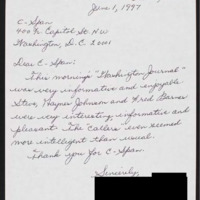 June 1, 1997
C-Span
400 N. Capitol St. NW
Washington, D.C. 20001
Dear C-Span:
This morning's "Washington Journal"
was very informative and enjoyable
Steve, Haynes Johnson and Fred Barnes
were very interesting, informative and
pleasant. The callers even seemed
more intelligent than usual.
Thank you for C-Span.
Sincerely,